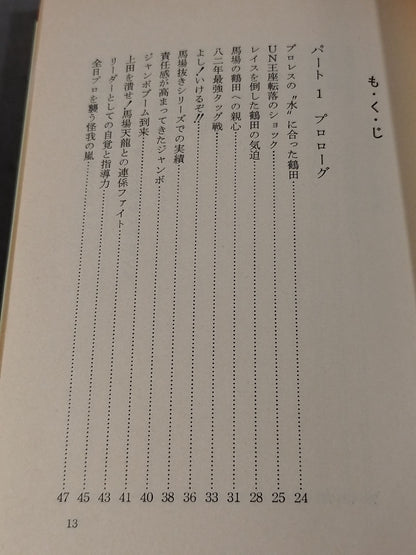 も・く・じ
パート1 プロローグ
プロレスの〝水〟に合った鶴田……24
UN王座転落のショック……25
レイスを倒した鶴田の気迫……28
馬場の鶴田への親心……31
八二年最強タッグ戦……33
よし!いけるぞ!!……36
馬場抜きシリーズでの実績……38
責任感が高まってきたジャンボ……40
ジャンボブーム到来……41
上田を潰せ!馬場天龍との連係ファイト……43
リーダーとしての自覚と指導力……45
全日プロを襲う怪我の嵐……47
13